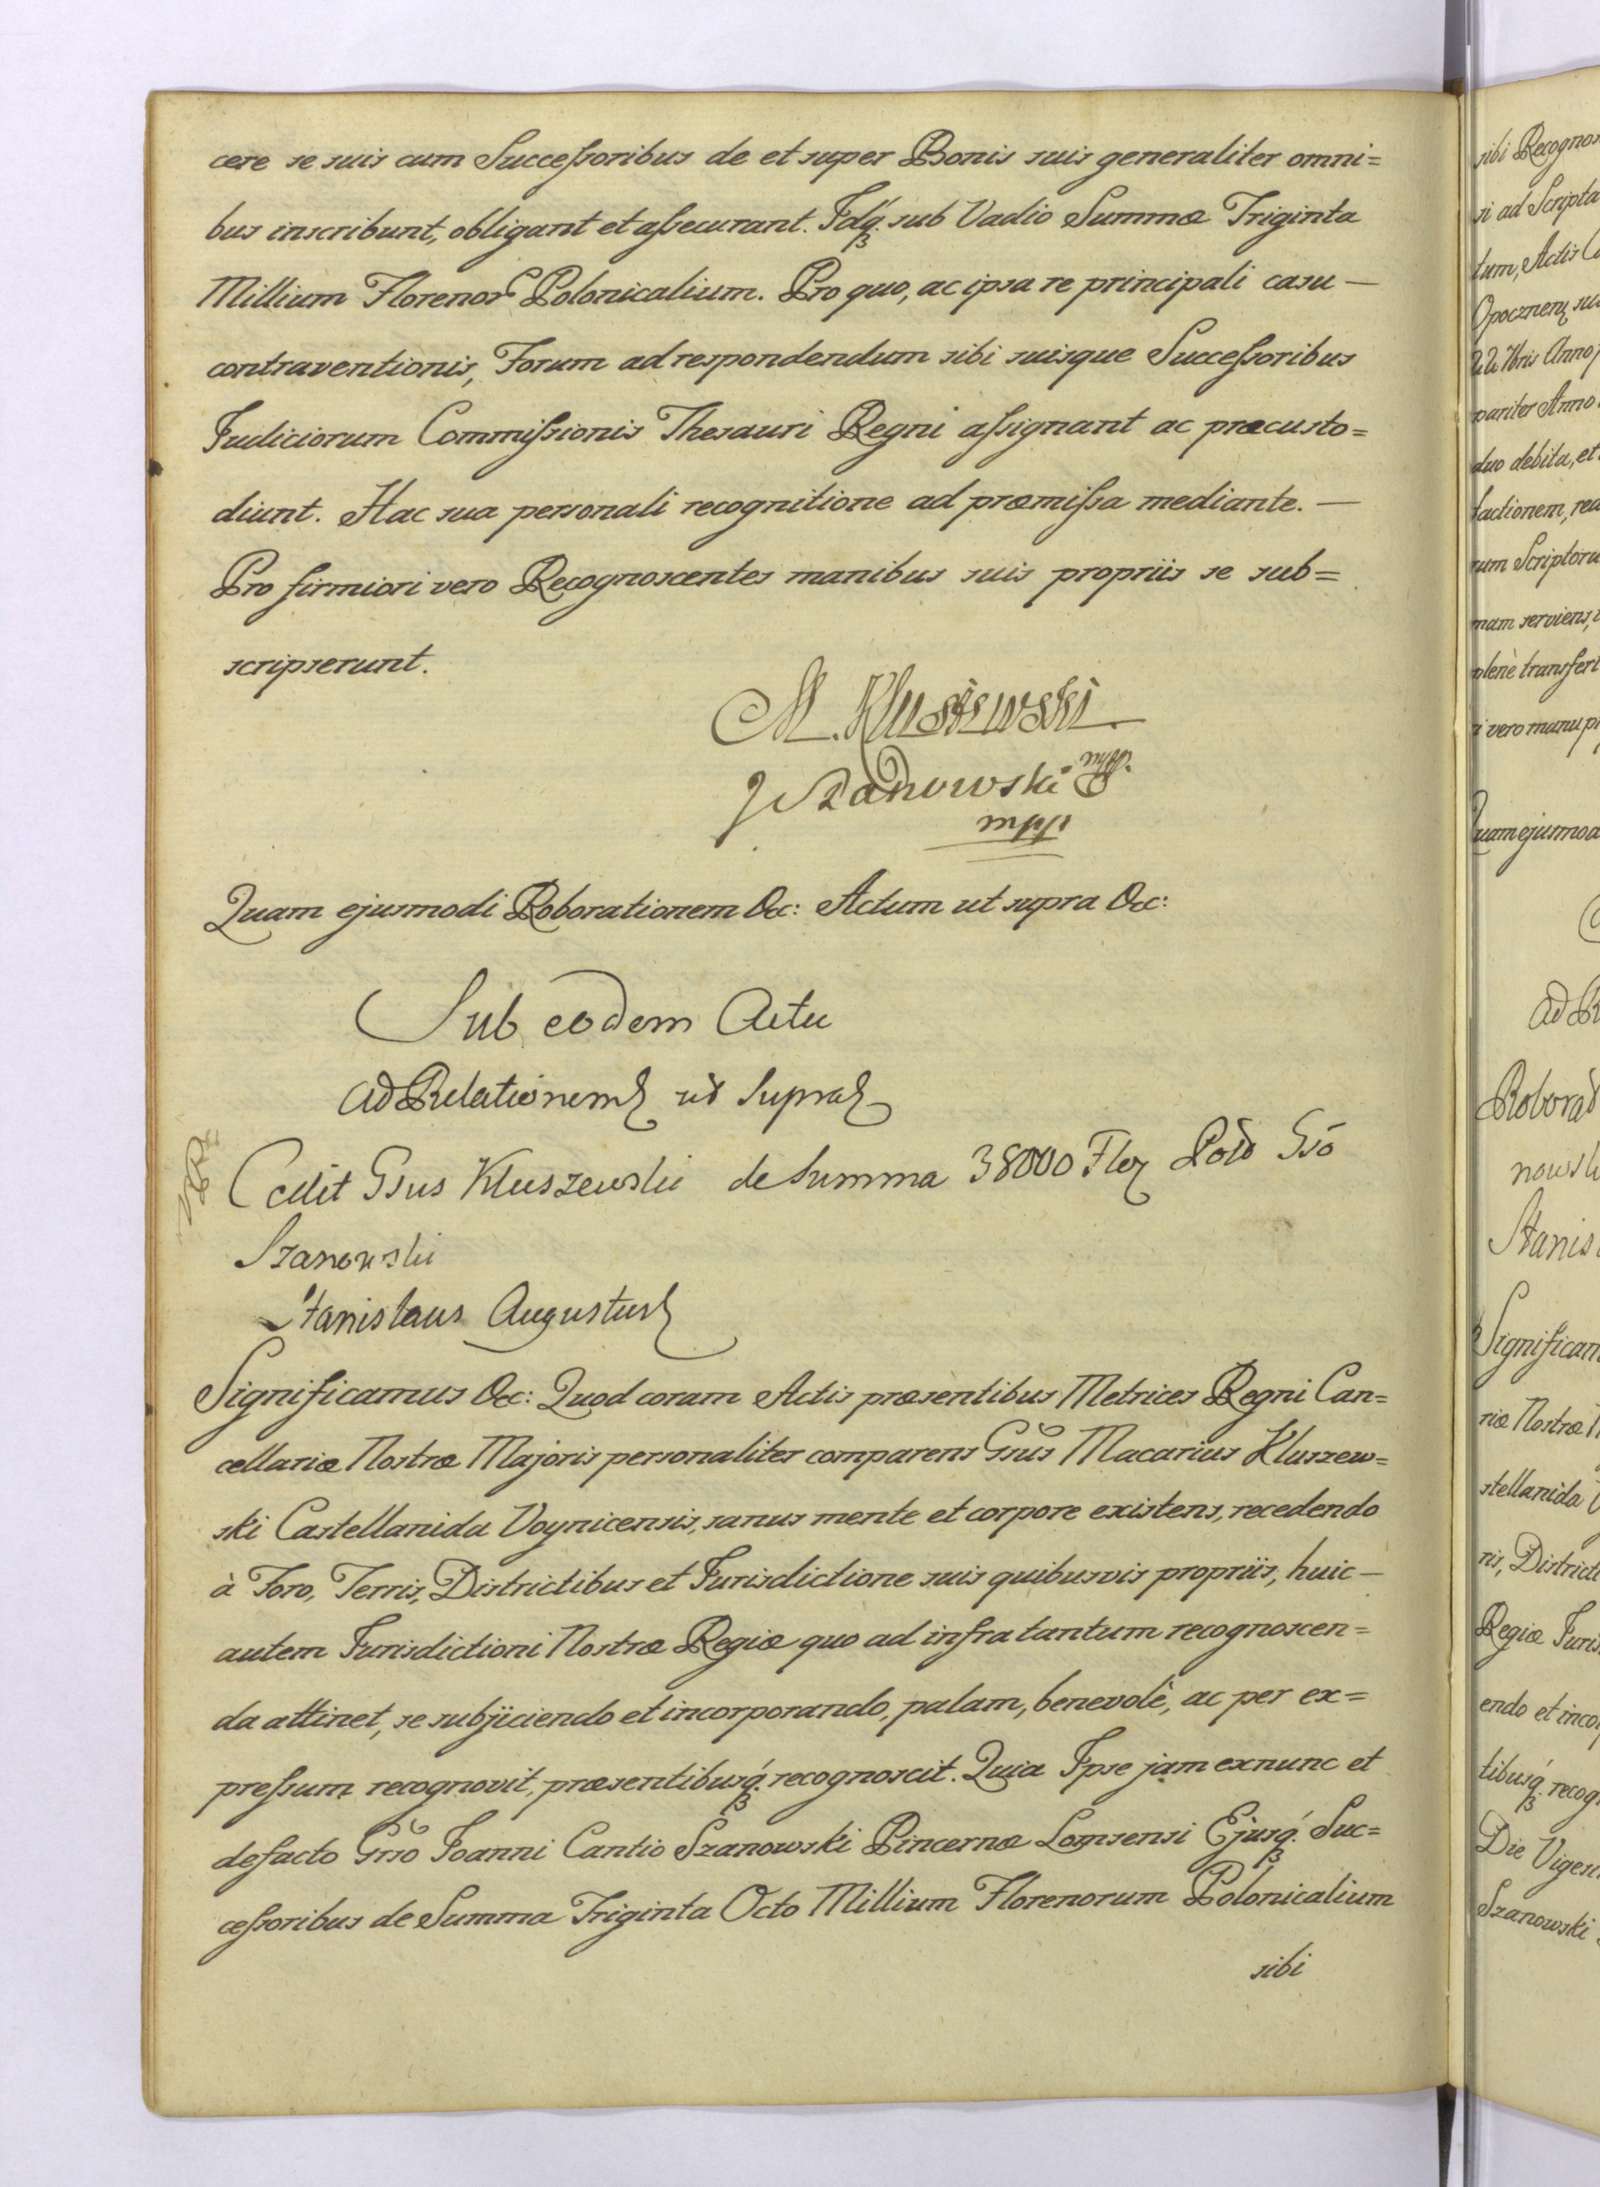 cere se suis cum Succeſsoribus de et super Bonis suis generaliter omni=
bus inscribunt, obligant et aſsecurant. Idq́ꝫ sub Vadio Summæ Triginta
Millium Florenor Polonicalium. Pro quo, ac ipsa re principali casu —
contraventionis, Forum ad respondendum sibi suisque Succeſsoribus
Judiciorum Commiſsionis Thesauri Regni aſsignant ac præcusto=
diunt. Hac sua personali recognitione ad præmiſsa mediante. —
Pro firmiori vero Recognoscentes manibus suis propriis se sub=
scripserunt.
M. Kluszewski
J Szanowski mpp.
mpp
Quam ejusmodi Roborationem &c: Actum ut supra &c:
Sub eodem Actu
Ad Relationem ut Supra
Cedit Gsus Kluszewski de Summa 38000 Flor Pol Gso
Szanowski
Stanislaus Augustus
Significamus &c: Quod coram Actis præsentibus Metrices Regni Can=
cellariæ Nostræ Majoris personaliter comparens Gsus Macarius Kluszew=
ski Castellanida Voynicensis, sanus mente et corpore existens, recedendo
à Foro, Terris, Districtibus et Jurisdictione suis quibusvis propriis, huic —
autem Jurisdictioni Nostræ Regiæ quo ad infra tantum recognoscen=
da attinet, se subjiciendo et incorporando, palam, benevolè, ac per ex=
preſsum recognovit, præsentibusq́ꝫ recognoscit. Quia Ipse jam exnunc et
defacto Gso Joanni Cantio Szanowski Pincernæ Lomsensi Ejusq́ꝫ Suc=
ceſsoribus de Summa Triginta Octo Millium Florenorum Polonicalium
sibi
sibi Recognos
si ad Scripta
tum, Actis C
pariter Anno
duo debita, et
factionem, rea
rum Scriptoru
mam serviens,
plenè transfert
i vero manu p
Quam ejusmod
Ad R
Roborat
nowsk
Stanis
Significam
riæ Nostræ M
stellanida V
ris, Districti
Regiæ Juris
endo et inco
tibusq́ꝫ recog
Die Viges
Szanowski